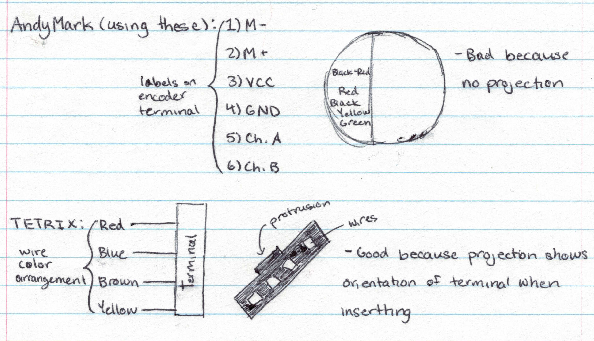 AndyMark (using these):
labels on
encoder
terminal
1) M-
2) M+
3) VCC
4) GND
5) Ch. A
6) Ch. B
Black-Red
Red
Black
Yellow
Green
- Bad because
no projection
TETRIX:
wire
color
arrangement
Red
Blue
Brown
Yellow
terminal
protrusion
wires
- Good because projection shows
orientation of terminal when
inserthing